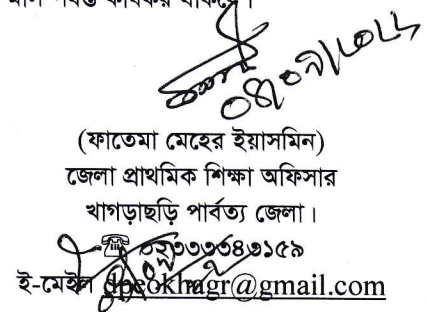 মাস পর্যন্ত কার্যকর থাকবে।
(ফাতেমা মেহের ইয়াসমিন)
জেলা প্রাথমিক শিক্ষা অফিসার
খাগড়াছড়ি পার্বত্য জেলা।
☎ ০২৩৩৩৩৪৩১৫৯
ই-মেইল dpeokhagr@gmail.com